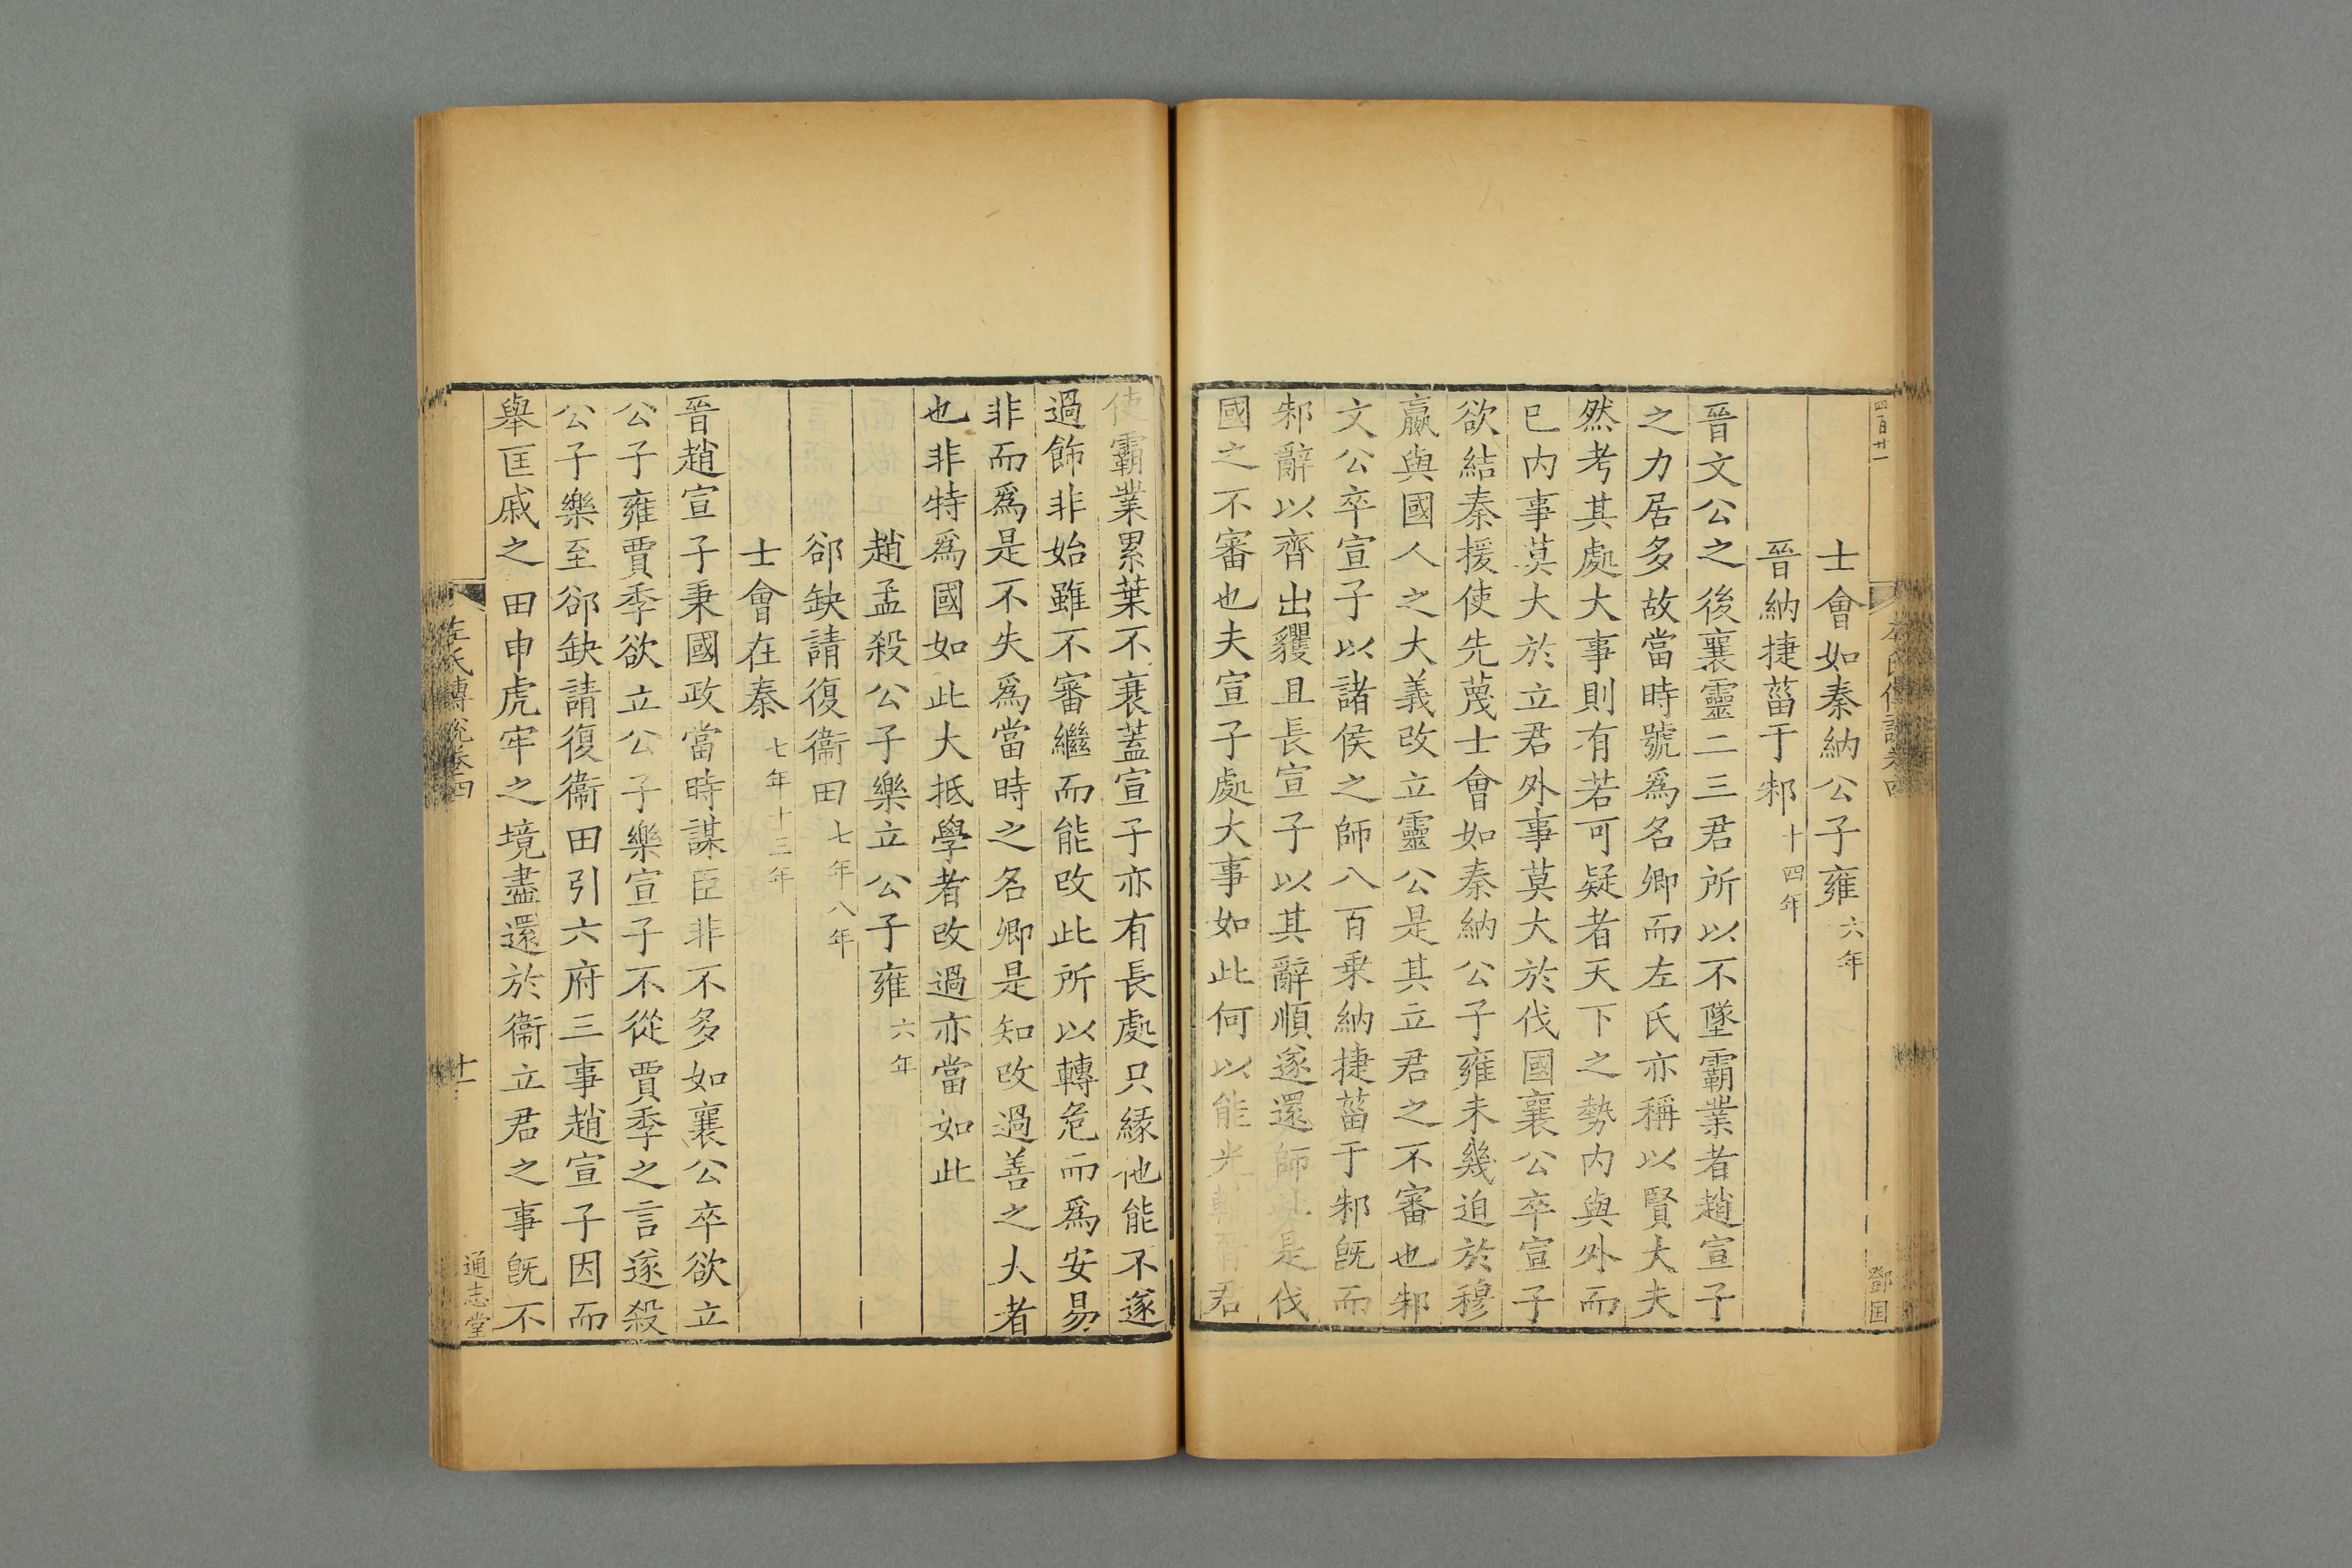 四百廿一
左氏傳說卷四
鄧国
士會如秦納公子雍六年
晉納捷菑于邾十四年
晉文公之後襄靈二三君所以不墜霸業者趙宣子
之力居多故當時號爲名卿而左氏亦稱以賢大夫
然考其處大事則有若可疑者天下之勢内與外而
已内事莫大於立君外事莫大於伐國襄公卒宣子
欲結秦援使先蔑士會如秦納公子雍未幾迫於穆
嬴與國人之大義改立靈公是其立君之不審也邾
文公卒宣子以諸侯之師八百乗納捷菑于邾旣而
邾辭以齊出貜且長宣子以其辭順遂還師此是伐
國之不審也夫宣子處大事如此何以能光輔晉君
使霸業累葉不衰蓋宣子亦有長處只緣他能不遂
過飾非始雖不審繼而能改此所以轉危而爲安易
非而爲是不失爲當時之名卿是知改過善之大者
也非特爲國如此大抵學者改過亦當如此
趙孟殺公子樂立公子雍六年
郤缺請復衞田七年八年
士會在秦七年十三年
晉趙宣子秉國政當時謀臣非不多如襄公卒欲立
公子雍賈季欲立公子樂宣子不從賈季之言遂殺
公子樂至郤缺請復衞田引六府三事趙宣子因而
舉匡戚之田申虎牢之境盡還於衞立君之事旣不
左氏傳說卷四
十一
通志堂